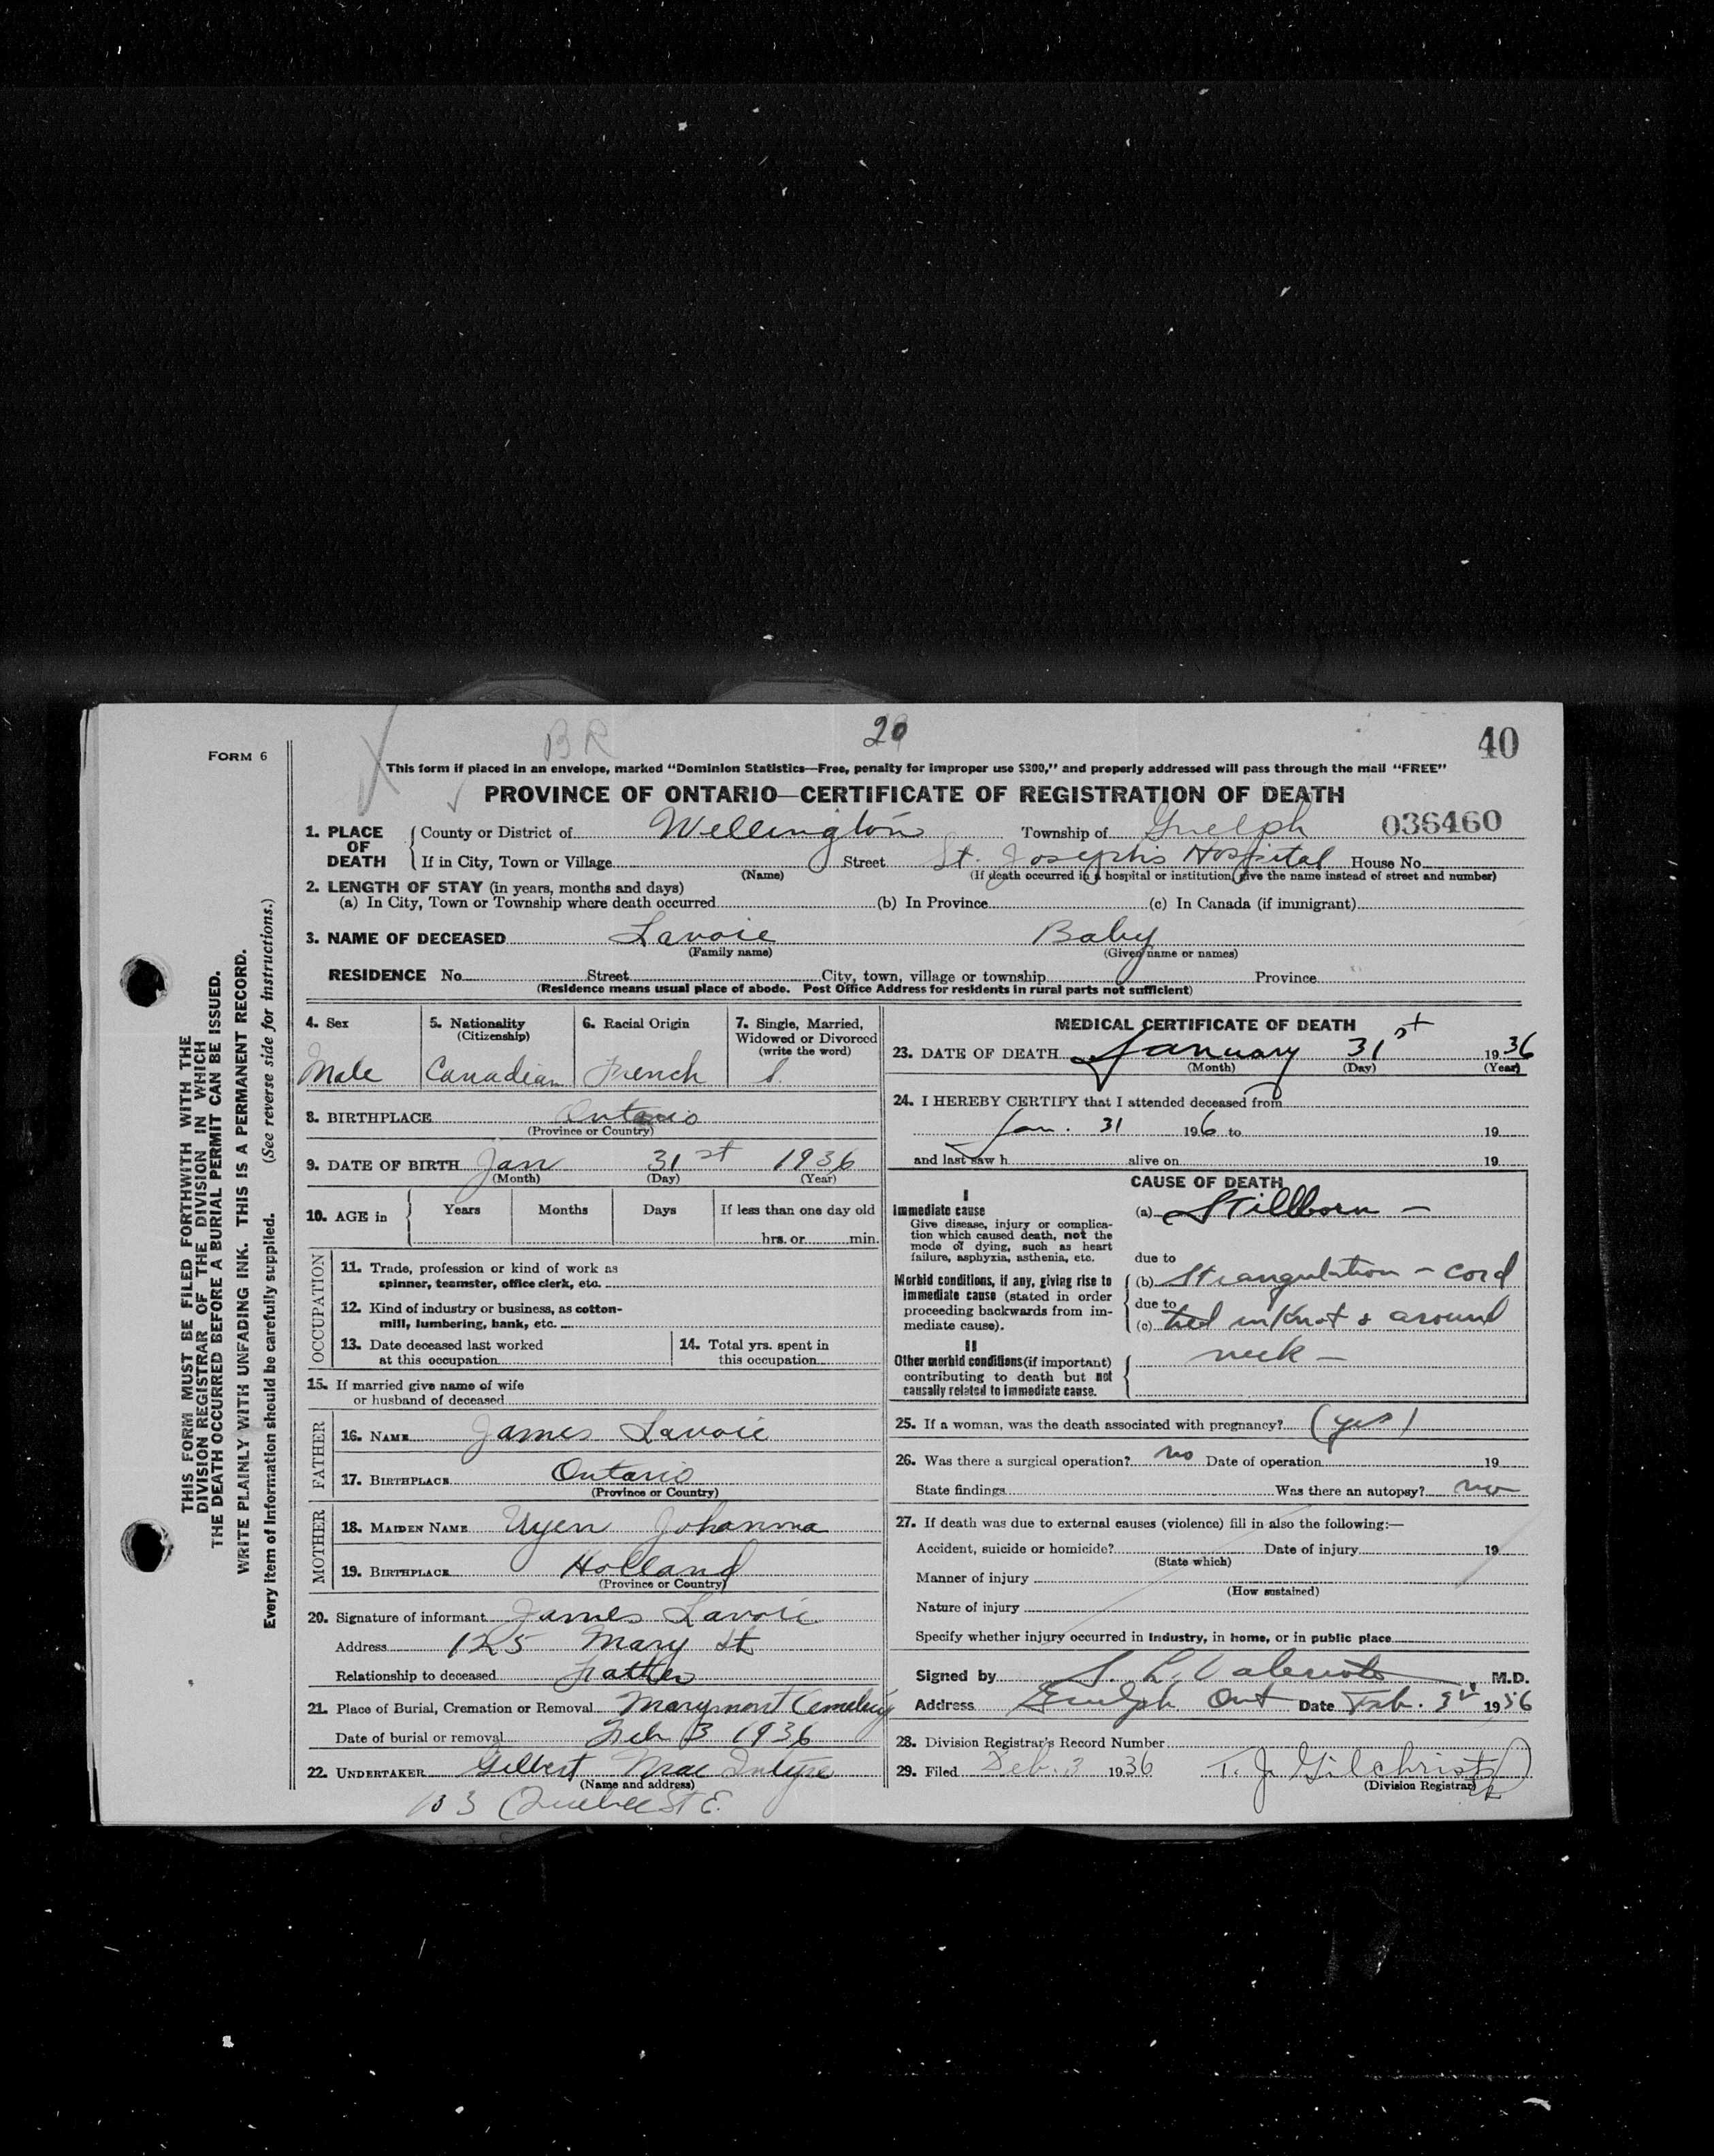 BR 20 40
FORM 6
This form if placed in an envelope, marked "Dominion Statistics—Free, penalty for improper use $300," and properly addressed will pass through the mail "FREE"
PROVINCE OF ONTARIO—CERTIFICATE OF REGISTRATION OF DEATH
THIS FORM MUST BE FILED FORTHWITH WITH THE
DIVISION REGISTRAR OF THE DIVISION IN WHICH
THE DEATH OCCURRED BEFORE A BURIAL PERMIT CAN BE ISSUED.
WRITE PLAINLY WITH UNFADING INK. THIS IS A PERMANENT RECORD.
Every item of Information should be carefully supplied. (See reverse side for instructions.)
1. PLACE OF DEATH
County or District of Wellington Township of Guelph 036460
If in City, Town or Village Street St. Joseph's Hospital House No.
(Name) (If death occurred in a hospital or institution, give the name instead of street and number)
2. LENGTH OF STAY (in years, months and days)
(a) In City, Town or Township where death occurred (b) In Province (c) In Canada (if immigrant)
3. NAME OF DECEASED Lavoie Baby
(Family name) (Given name or names)
RESIDENCE No. Street City, town, village or township Province
(Residence means usual place of abode. Post Office Address for residents in rural parts not sufficient)
4. Sex 5. Nationality (Citizenship) 6. Racial Origin 7. Single, Married, Widowed or Divorced (write the word)
Male Canadian French S.
8. BIRTHPLACE Ontario
(Province or Country)
9. DATE OF BIRTH Jan 31st 1936
(Month) (Day) (Year)
10. AGE in Years Months Days If less than one day old
hrs. or min.
OCCUPATION
11. Trade, profession or kind of work as
spinner, teamster, office clerk, etc.
12. Kind of industry or business, as cotton-
mill, lumbering, bank, etc.
13. Date deceased last worked
at this occupation
14. Total yrs. spent in
this occupation
15. If married give name of wife
or husband of deceased
FATHER
16. NAME James Lavoie
17. BIRTHPLACE Ontario
(Province or Country)
MOTHER
18. MAIDEN NAME Uyen Johanna
19. BIRTHPLACE Holland
(Province or Country)
20. Signature of informant James Lavoie
Address 125 Mary St
Relationship to deceased Father
21. Place of Burial, Cremation or Removal Marymont Cemetery
Date of burial or removal Feb 3 1936
22. UNDERTAKER Gilbert MacIntyre
(Name and address)
103 Quebec St E.
MEDICAL CERTIFICATE OF DEATH
23. DATE OF DEATH January 31st 1936
(Month) (Day) (Year)
24. I HEREBY CERTIFY that I attended deceased from
Jan. 31 196 to 19
and last saw h alive on 19
CAUSE OF DEATH
I
Immediate cause
Give disease, injury or complica-
tion which caused death, not the
mode of dying, such as heart
failure, asphyxia, asthenia, etc.
(a) Stillborn —
due to
Morbid conditions, if any, giving rise to
immediate cause (stated in order
proceeding backwards from im-
mediate cause).
(b) Strangulation — cord
due to
(c) tied in knot & around
II
Other morbid conditions (if important)
contributing to death but not
causally related to immediate cause.
neck —
25. If a woman, was the death associated with pregnancy? (yes)
26. Was there a surgical operation? no Date of operation 19
State findings Was there an autopsy? no
27. If death was due to external causes (violence) fill in also the following:—
Accident, suicide or homicide? Date of injury 19
(State which)
Manner of injury
(How sustained)
Nature of injury
Specify whether injury occurred in industry, in home, or in public place
Signed by S. L. Valeriote M.D.
Address Guelph Ont Date Feb. 3 1936
28. Division Registrar's Record Number
29. Filed Feb. 3 1936 T. J. Gilchrist
(Division Registrar)